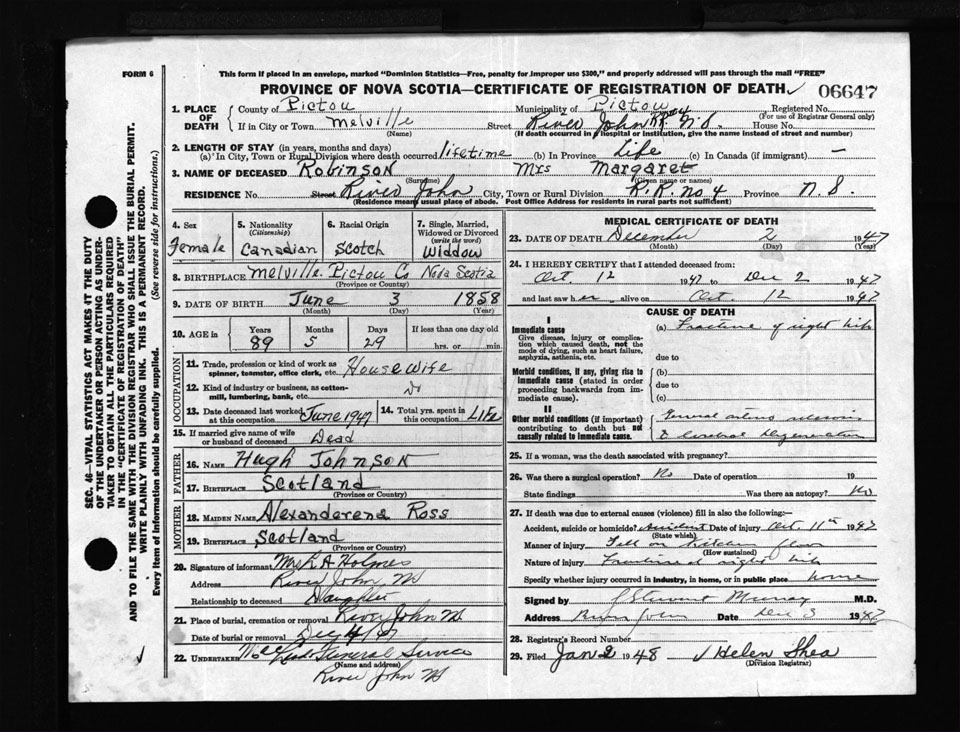 FORM 6
This form if placed in an envelope, marked "Dominion Statistics—Free, penalty for improper use $300," and properly addressed will pass through the mail "FREE"
PROVINCE OF NOVA SCOTIA—CERTIFICATE OF REGISTRATION OF DEATH. 06647
1. PLACE OF DEATH County of Pictou Municipality of Pictou Registered No.
(For use of Registrar General only)
If in City or Town Melville Street River John N.S. House No.
(Name) (If death occurred in a hospital or institution, give the name instead of street and number)
2. LENGTH OF STAY (in years, months and days)
(a) In City, Town or Rural Division where death occurred lifetime (b) In Province Life (c) In Canada (if immigrant) —
3. NAME OF DECEASED Robinson Mrs Margaret
(Surname) (Given name or names)
RESIDENCE No. Street River John City, Town or Rural Division R.R. no 4 Province N.S.
(Residence means usual place of abode. Post Office Address for residents in rural parts not sufficient)
4. Sex Female
5. Nationality (Citizenship) Canadian
6. Racial Origin Scotch
7. Single, Married, Widowed or Divorced (write the word) Widdow
8. BIRTHPLACE Melville Pictou Co Nova Scotia
(Province or Country)
9. DATE OF BIRTH June 3 1858
(Month) (Day) (Year)
10. AGE in Years Months Days If less than one day old
89 5 29 hrs. or min.
OCCUPATION
11. Trade, profession or kind of work as spinner, teamster, office clerk, etc. Housewife
12. Kind of industry or business, as cotton-mill, lumbering, bank, etc. Do
13. Date deceased last worked at this occupation June 1947
14. Total yrs. spent in this occupation Life
15. If married give name of wife or husband of deceased Dead
FATHER
16. NAME Hugh Johnson
17. BIRTHPLACE Scotland
(Province or Country)
MOTHER
18. MAIDEN NAME Alexanderena Ross
19. BIRTHPLACE Scotland
(Province or Country)
20. Signature of informant A Holmes
Address River John, NS
Relationship to deceased Daughter
21. Place of burial, cremation or removal River John NS
Date of burial or removal Dec 4/47
22. UNDERTAKER Funeral Service
(Name and address)
River John NS
MEDICAL CERTIFICATE OF DEATH
23. DATE OF DEATH December 2 1947
(Month) (Day) (Year)
24. I HEREBY CERTIFY that I attended deceased from:
Oct. 12 1947 to Dec 2 1947
and last saw her alive on Oct. 12 1947
CAUSE OF DEATH
I
Immediate cause
Give disease, injury or complication which caused death, not the mode of dying, such as heart failure, asphyxia, asthenia, etc.
(a) Fracture of right hip
due to
Morbid conditions, if any, giving rise to immediate cause (stated in order proceeding backwards from immediate cause).
(b)
due to
(c)
II
Other morbid conditions (if important) contributing to death but not causally related to immediate cause.
General
& Cerebral Degeneration
25. If a woman, was the death associated with pregnancy?
26. Was there a surgical operation? No Date of operation 19
State findings Was there an autopsy? No
27. If death was due to external causes (violence) fill in also the following:—
Accident, suicide or homicide? Accident Date of injury Oct. 11th 1947
(State which)
Manner of injury Fall on kitchen floor
(How sustained)
Nature of injury Fracture of right hip
Specify whether injury occurred in industry, in home, or in public place home
Signed by J Stewart Murray M.D.
Address River John Date Dec 3 1947
28. Registrar's Record Number
29. Filed Jan 2 1948 J Helen Shea
(Division Registrar)
SEC. 46—VITAL STATISTICS ACT MAKES IT THE DUTY OF THE UNDERTAKER OR PERSON ACTING AS UNDERTAKER TO OBTAIN ALL THE PARTICULARS REQUIRED IN THE "CERTIFICATE OF REGISTRATION OF DEATH" AND TO FILE THE SAME WITH THE DIVISION REGISTRAR WHO SHALL ISSUE THE BURIAL PERMIT.
WRITE PLAINLY WITH UNFADING INK. THIS IS A PERMANENT RECORD.
Every item of Information should be carefully supplied. (See reverse side for instructions.)